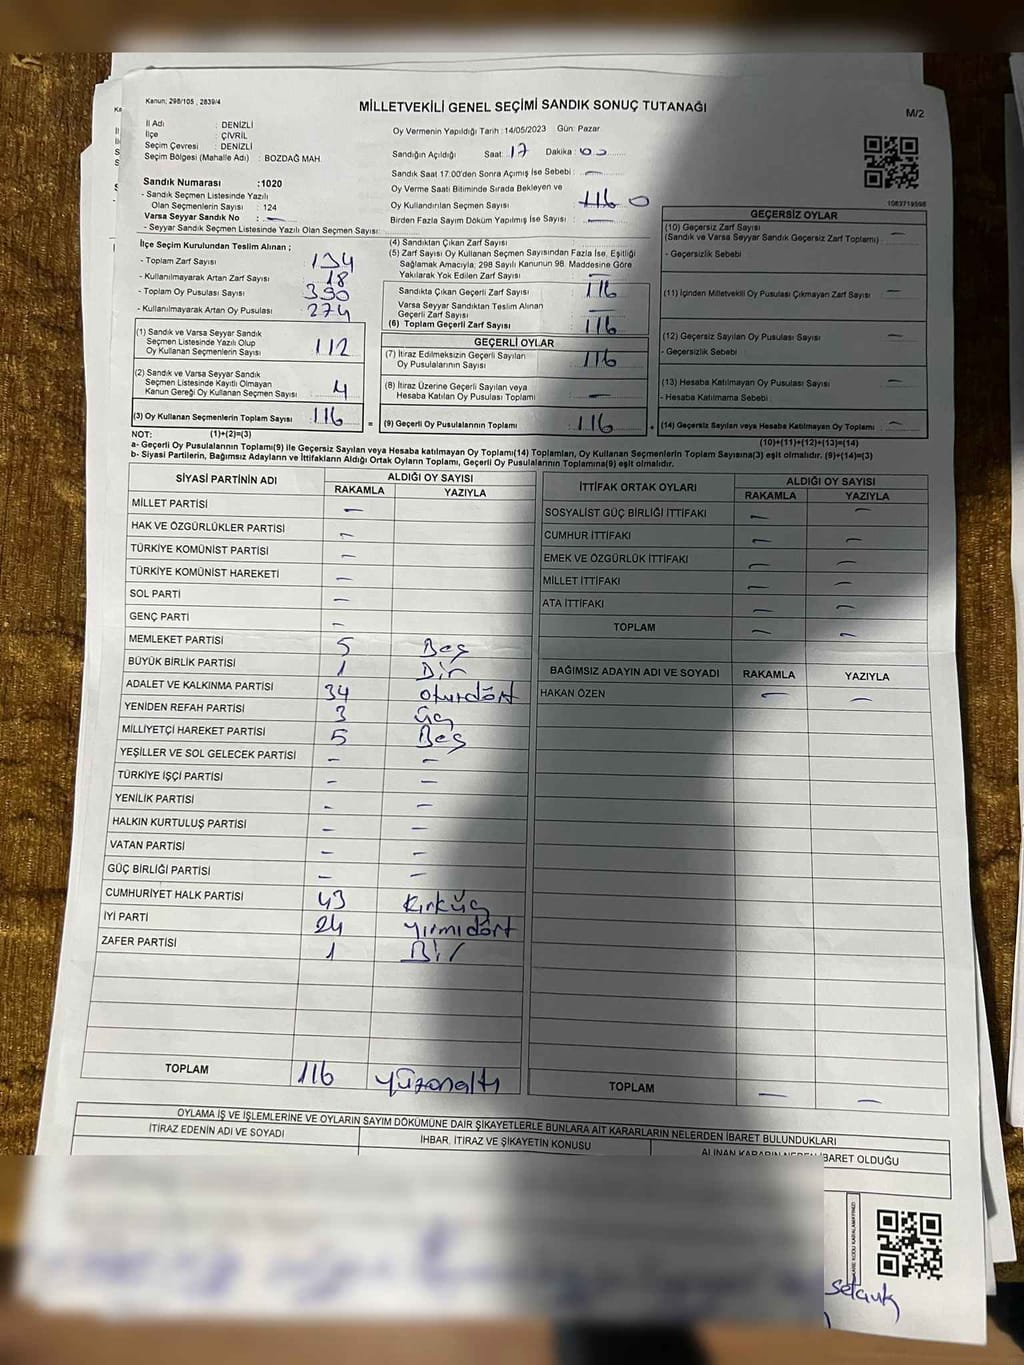 Kanun; 298/105 , 2839/4
MİLLETVEKİLİ GENEL SEÇİMİ SANDIK SONUÇ TUTANAĞI
M/2
İl Adı : DENİZLİ
İlçe : ÇİVRİL
Seçim Çevresi : DENİZLİ
Seçim Bölgesi (Mahalle Adı) : BOZDAĞ MAH.
Sandık Numarası :1020
- Sandık Seçmen Listesinde Yazılı
Olan Seçmenlerin Sayısı : 124
Varsa Seyyar Sandık No : —
- Seyyar Sandık Seçmen Listesinde Yazılı Olan Seçmen Sayısı:
Oy Vermenin Yapıldığı Tarih :14/05/2023 Gün: Pazar
Sandığın Açıldığı Saat: 17 Dakika : 00
Sandık Saat 17.00'den Sonra Açımış İse Sebebi : —
Oy Verme Saati Bitiminde Sırada Bekleyen ve
Oy Kullandırılan Seçmen Sayısı : 116 0
Birden Fazla Sayım Döküm Yapılmış İse Sayısı : —
1083719598
İlçe Seçim Kurulundan Teslim Alınan ;
- Toplam Zarf Sayısı : 134
- Kullanılmayarak Artan Zarf Sayısı : 18
- Toplam Oy Pusulası Sayısı : 390
- Kullanılmayarak Artan Oy Pusulası : 274
(1) Sandık ve Varsa Seyyar Sandık
Seçmen Listesinde Yazılı Olup
Oy Kullanan Seçmenlerin Sayısı : 112
(2) Sandık ve Varsa Seyyar Sandık
Seçmen Listesinde Kayıtlı Olmayan
Kanun Gereği Oy Kullanan Seçmen Sayısı : 4
(3) Oy Kullanan Seçmenlerin Toplam Sayısı : 116
(4) Sandıktan Çıkan Zarf Sayısı
(5) Zarf Sayısı Oy Kullanan Seçmen Sayısından Fazla İse, Eşitliği
Sağlamak Amacıyla; 298 Sayılı Kanunun 98. Maddesine Göre
Yakılarak Yok Edilen Zarf Sayısı : —
Sandıkta Çıkan Geçerli Zarf Sayısı : 116
Varsa Seyyar Sandıktan Teslim Alınan
Geçerli Zarf Sayısı : —
(6) Toplam Geçerli Zarf Sayısı : 116
GEÇERLİ OYLAR
(7) İtiraz Edilmeksizin Geçerli Sayılan
Oy Pusulalarının Sayısı : 116
(8) İtiraz Üzerine Geçerli Sayılan veya
Hesaba Katılan Oy Pusulası Toplamı : —
= (9) Geçerli Oy Pusulalarının Toplamı : 116
GEÇERSİZ OYLAR
(10) Geçersiz Zarf Sayısı
(Sandık ve Varsa Seyyar Sandık Geçersiz Zarf Toplamı) —
- Geçersizlik Sebebi
(11) İçinden Milletvekili Oy Pusulası Çıkmayan Zarf Sayısı —
(12) Geçersiz Sayılan Oy Pusulası Sayısı —
- Geçersizlik Sebebi
(13) Hesaba Katılmayan Oy Pusulası Sayısı —
- Hesaba Katılmama Sebebi
(14) Geçersiz Sayılan veya Hesaba Katılmayan Oy Toplamı —
NOT: (1)+(2)=(3)
(10)+(11)+(12)+(13)=(14)
a- Geçerli Oy Pusulalarının Toplamı(9) ile Geçersiz Sayılan veya Hesaba katılmayan Oy Toplamı(14) Toplamları, Oy Kullanan Seçmenlerin Toplam Sayısına(3) eşit olmalıdır. (9)+(14)=(3)
b- Siyasi Partilerin, Bağımsız Adayların ve İttifakların Aldığı Ortak Oyların Toplamı, Geçerli Oy Pusulalarının Toplamına(9) eşit olmalıdır.
SİYASİ PARTİNİN ADI ALDIĞI OY SAYISI
RAKAMLA YAZIYLA
MİLLET PARTİSİ —
HAK VE ÖZGÜRLÜKLER PARTİSİ —
TÜRKİYE KOMÜNİST PARTİSİ —
TÜRKİYE KOMÜNİST HAREKETİ —
SOL PARTİ —
GENÇ PARTİ —
MEMLEKET PARTİSİ 5 Beş
BÜYÜK BİRLİK PARTİSİ 1 Bir
ADALET VE KALKINMA PARTİSİ 34 oturdört
YENİDEN REFAH PARTİSİ 3 üç
MİLLİYETÇİ HAREKET PARTİSİ 5 Beş
YEŞİLLER VE SOL GELECEK PARTİSİ — —
TÜRKİYE İŞÇİ PARTİSİ — —
YENİLİK PARTİSİ — —
HALKIN KURTULUŞ PARTİSİ — —
VATAN PARTİSİ — —
GÜÇ BİRLİĞİ PARTİSİ — —
CUMHURİYET HALK PARTİSİ 43 Kırküç
İYİ PARTİ 24 yirmidört
ZAFER PARTİSİ 1 Bir
TOPLAM 116 yüzonaltı
İTTİFAK ORTAK OYLARI ALDIĞI OY SAYISI
RAKAMLA YAZIYLA
SOSYALİST GÜÇ BİRLİĞİ İTTİFAKI — —
CUMHUR İTTİFAKI — —
EMEK VE ÖZGÜRLÜK İTTİFAKI — —
MİLLET İTTİFAKI — —
ATA İTTİFAKI — —
TOPLAM — —
BAĞIMSIZ ADAYIN ADI VE SOYADI RAKAMLA YAZIYLA
HAKAN ÖZEN — —
TOPLAM — —
OYLAMA İŞ VE İŞLEMLERİNE VE OYLARIN SAYIM DÖKÜMÜNE DAİR ŞİKAYETLERLE BUNLARA AİT KARARLARIN NELERDEN İBARET BULUNDUKLARI
İTİRAZ EDENİN ADI VE SOYADI İHBAR, İTİRAZ VE ŞİKAYETİN KONUSU ALINAN KARARIN NEDEN İBARET OLDUĞU